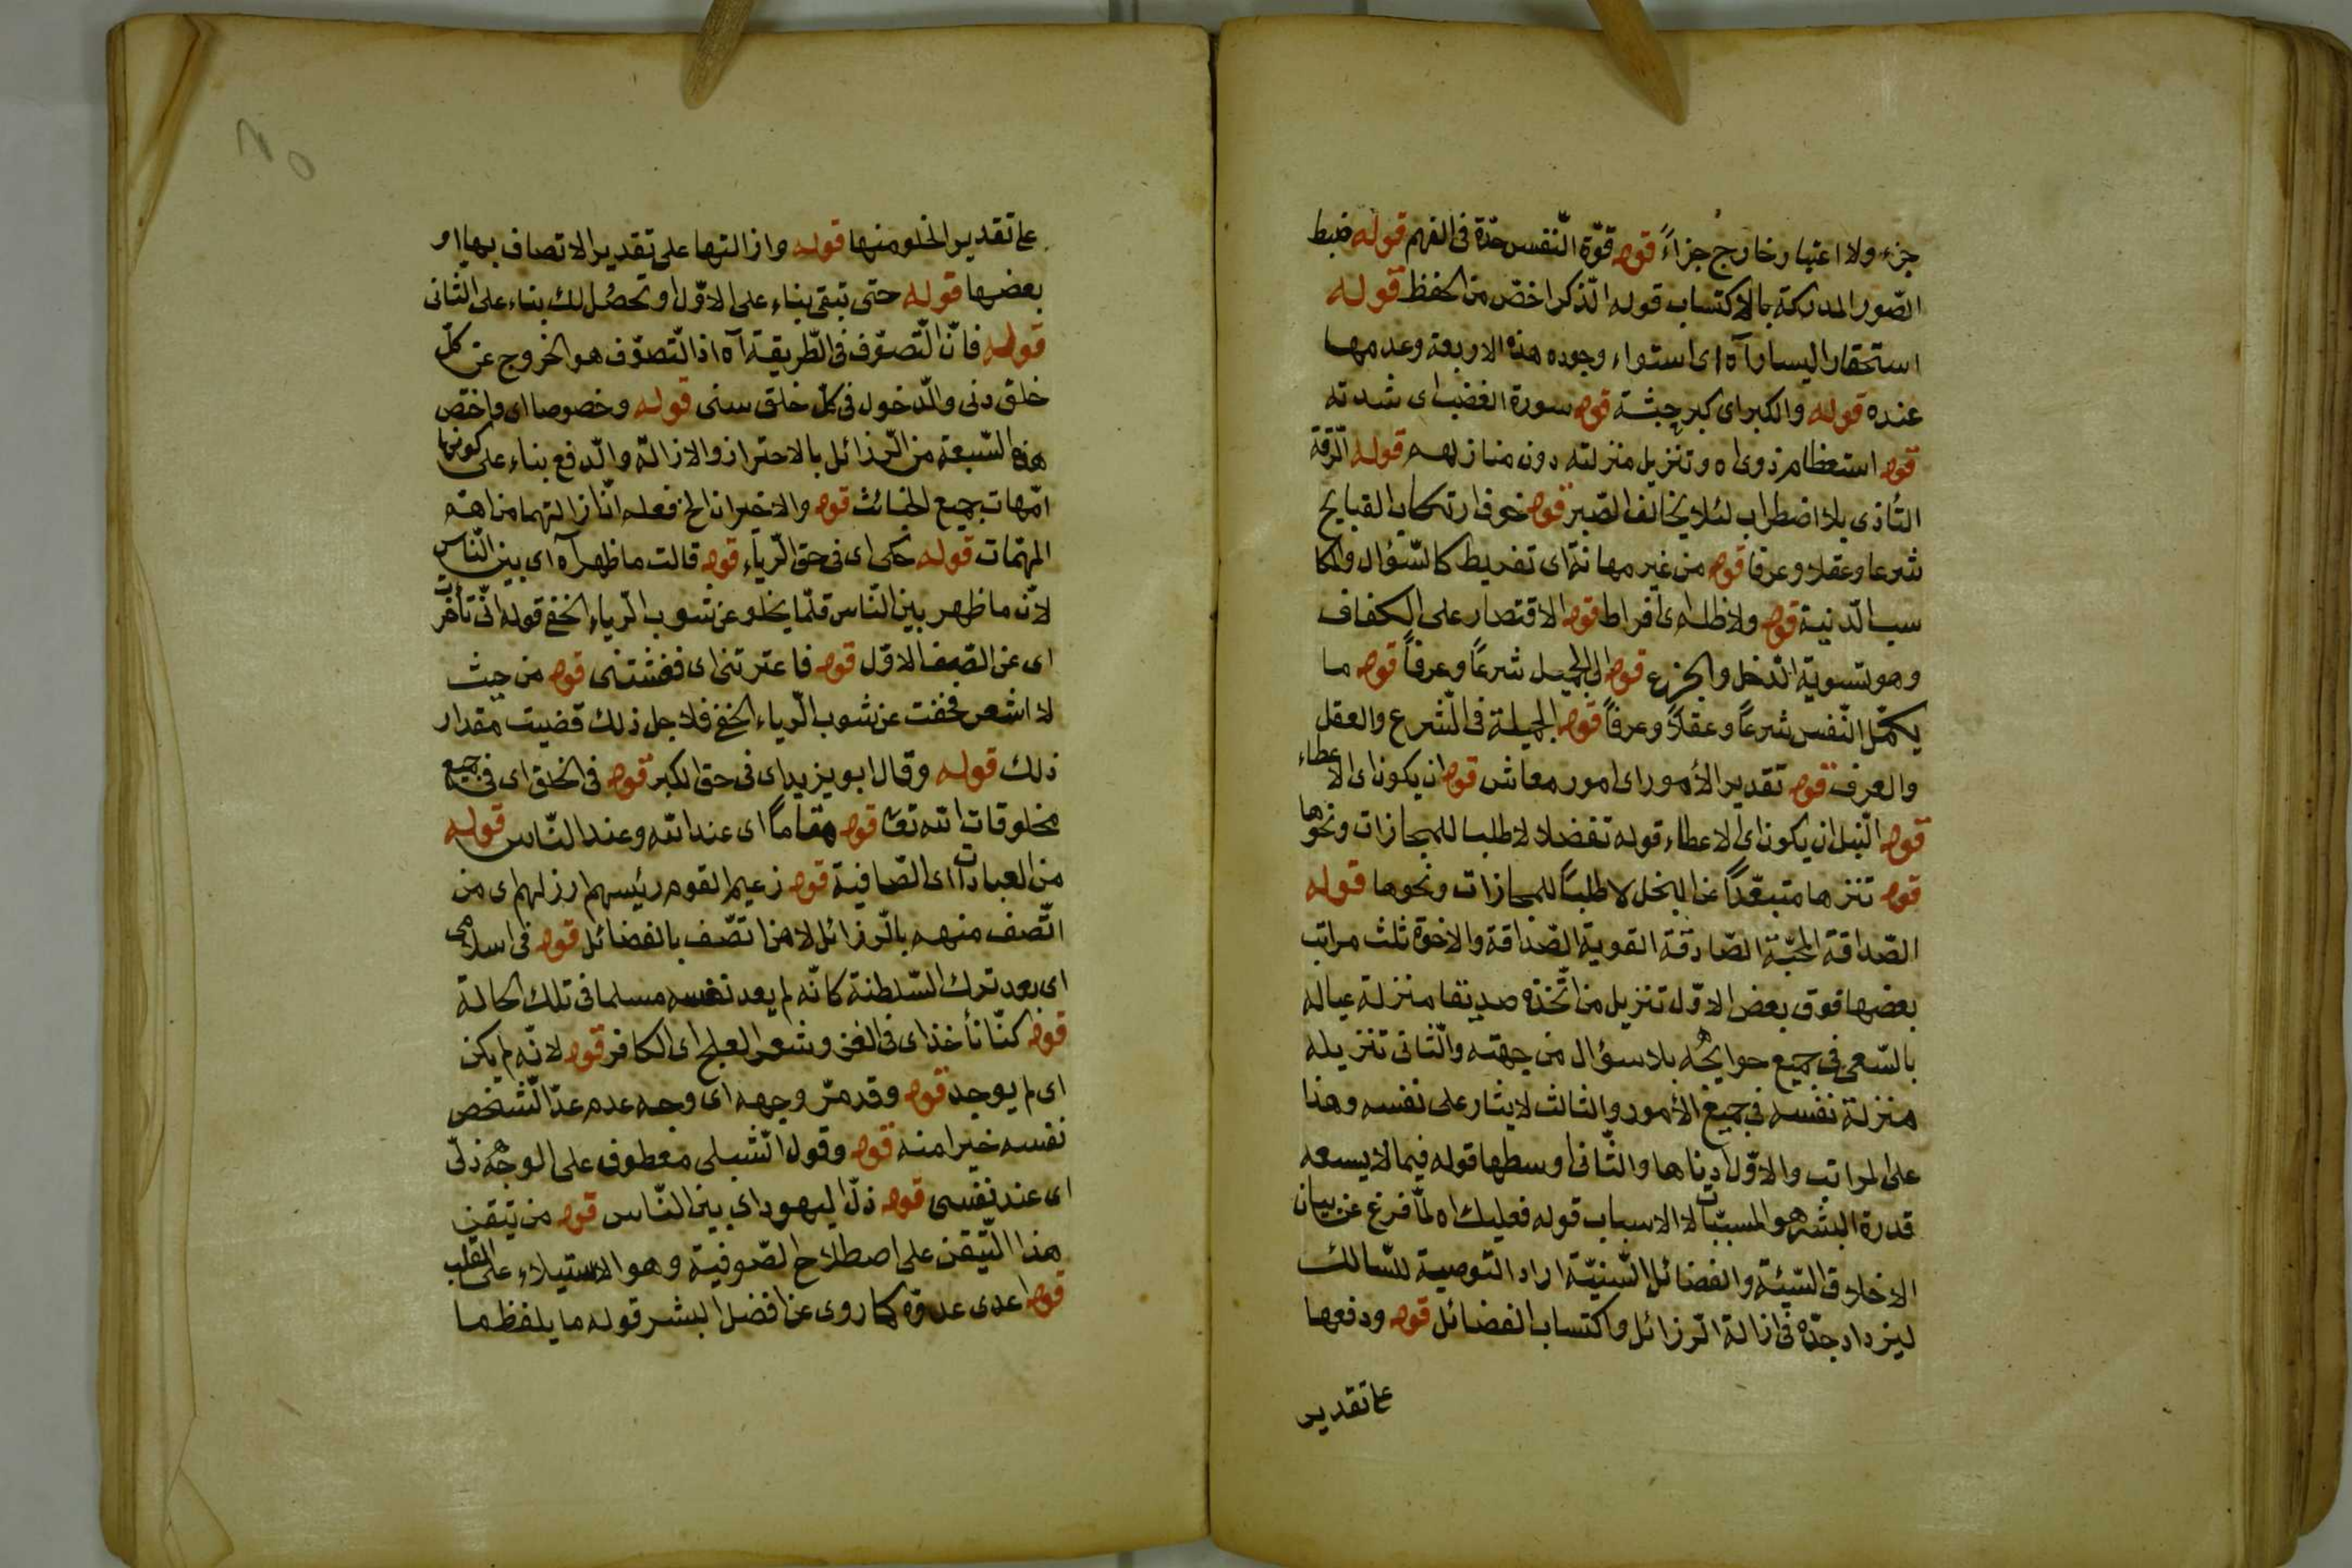 جزء ولا اعتبار خارج جزاءً قوله قوّة النّفس حدّة فى الفهم قوله ضبط
الصّور المدركة بالاكتساب قوله الذّكر اخصّ من الحفظ قوله
استحقار اليسار آه اى استواء وجوده هذه الاربعة وعدمها
عنده قوله والكبر اى كبر جثة قوله سورة الغضب اى شدته
قوله استعظام ذوى اه وتنزيل منزلته دون منازلهم قوله الرّقة
التأذى بلا اضطراب لئلا يخالف الصّبر قوله خوف ارتكاب القبايح
شرعا وعقلا وعرفا قوله من غير مهانة اى تفريط كالسّؤال والمكا
سب الدّنية قوله ولا ظلم اى افراط قوله الاقتصار على الكفاف
وهو تسوية الدّخل والخرج قوله الى الجميل شرعاً وعرفاً قوله ما
يكمّل النّفس شرعاً وعقلاً وعرفاً قوله الجميلة فى الشّرع والعقل
والعرف قوله تقدير الأمور اى امور معاش قوله ان يكون اى الاعطاء
قوله النّبل ان يكون اى الاعطاء قوله تفضلا لا طلبا للمجازات ونحوها
قوله تنزها متبعّداً عن البخل لا طلباً للمجازات ونحوها قوله
الصّداقة المحبّة الصّادقة القوية الصّداقة والاخوة ثلث مراتب
بعضها فوق بعض الاوّل تنزيل من اتّخذه صديقا منزلة عياله
بالسّعى فى جميع حوايجه بلا سؤال من جهته والثّانى تنزيله
منزلة نفسه فى جميع الأمور والثالث لايثار على نفسه وهذا
على المراتب والاوّل ادناها والثّانى اوسطها قوله فيما لا يسعه
قدرة البشر هو المسبّبات لا الاسباب قوله فعليك اه لمّا فرغ عن بيان
الاخلاق السّيئة والفضائل السّنيّة اراد التّوصية للسّالك
ليزداد جدّه فى ازالة الرّزائل واكتساب الفضائل قوله ودفعها
على تقدير
على تقدير الخلو منها قوله وازالتها على تقدير الاتصاف بها او
بعضها قوله حتى تبقى بناء على الاوّل او تحصل لك بناء على الثانى
قوله فانّ التّصوّف فى الطّريقة آه اذ التّصوّف هو الخروج عن كلّ
خلق دنى والدّخول فى كلّ خلق سنى قوله وخصوصا اى واخصّ
هذه السّبعة من الرّذائل بالاحتراز والازالة والدّفع بناء على كونها
امّهات جميع الخبائث قوله والاخيران الخ فعله انّ ازالتهما من اهم
المهمّات قوله حكى اى فى حق الرّياء قوله قالت ما ظهر آه اى بين النّاس
لانّ ما ظهر بين النّاس قلّما يخلو عن شوب الرّياء الخفى قوله انّى تأخرت
اى عن الصّف الاوّل قوله فاعترتنى اى فغشتنى قوله من حيث
لا اشعر فخفت عن شوب الرّياء الخفى فلاجل ذلك قضيت مقدار
ذلك قوله وقال ابو يزيد اى فى حق الكبر قوله فى الخلق اى فى جميع
مخلوقات الله تعالى قوله مقاماً اى عند الله وعند النّاس قوله
من العبادات اى الصّافية قوله زعيم القوم رئيسهم ارزلهم اى من
اتّصف منهم بالرّزائل لا من اتصّف بالفضائل قوله فى اسلامى
اى بعد ترك السّلطنة كانّه لم يعد نفسه مسلما فى تلك الحالة
قوله كنّا نأخذ اى فى الغز وشعر العلج اى الكافر قوله لانّه لم يكن
اى لم يوجد قوله وقد مرّ وجهه اى وجه عدم عدّ الشّخص
نفسه خيرا منه قوله وقول الشّبلى معطوف على الوجه ذلّى
اى عند نفسى قوله ذلّ اليهود اى بين النّاس قوله من تيقن
هذا التّيقن على اصطلاح الصّوفية وهو الاستيلاء على القلب
قوله اعدى عدوّه كما روى عن افضل البشر قوله ما يلفظ ما